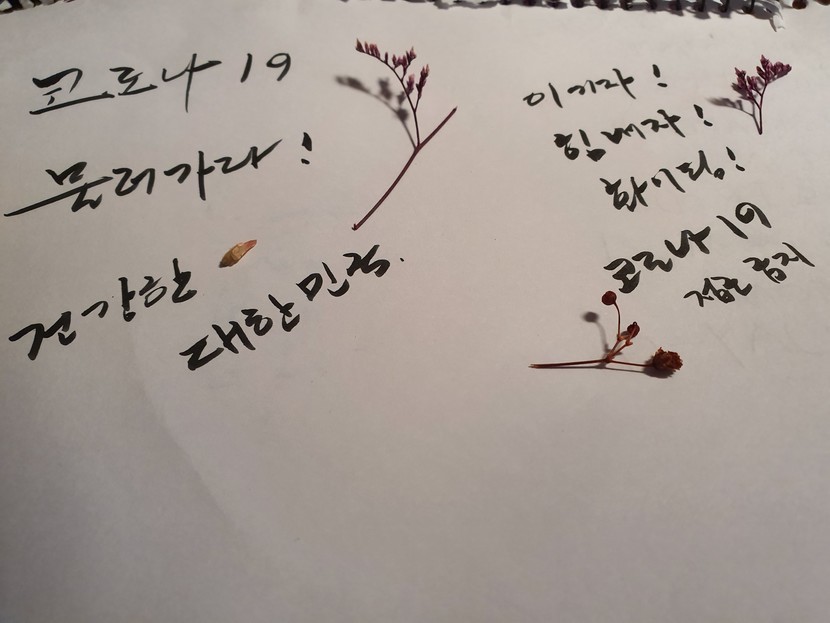 코로나 19
물러가라!
건강한
대한민국.
이기자!
힘내자!
화이팅!
코로나 19
접근 금지